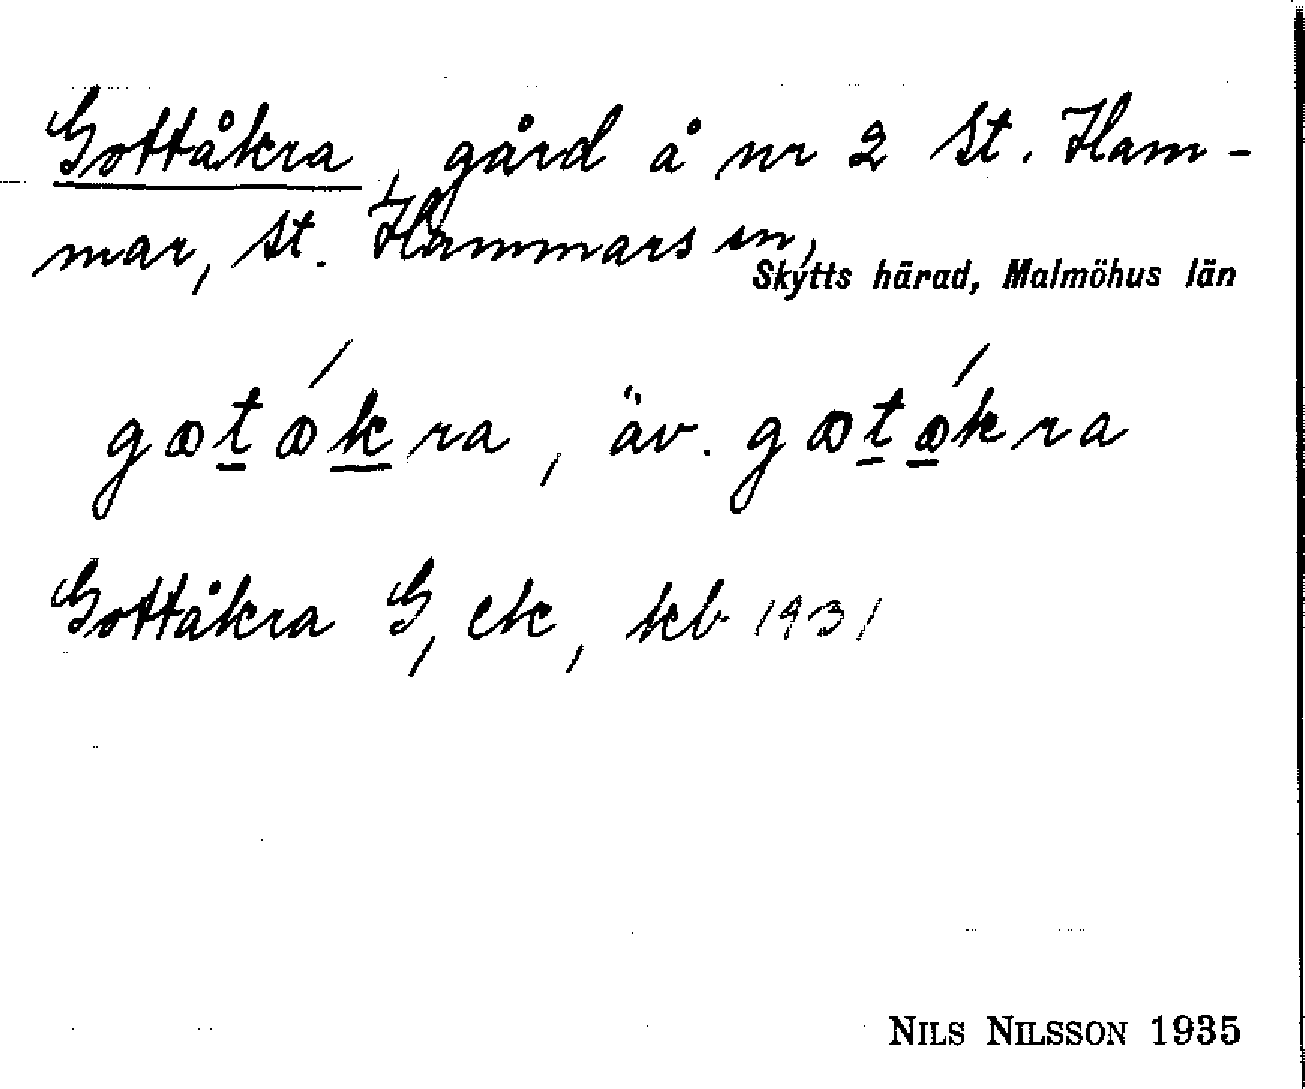 Gottåkra, gård å nr 2 St. Ham-
mar, St. Hammars sn,
Skytts härad, Malmöhus län
gɷtɷ́kra, äv. gɷtɷ́kra
Gottåkra G, ek, kb 1931
NILS NILSSON 1935